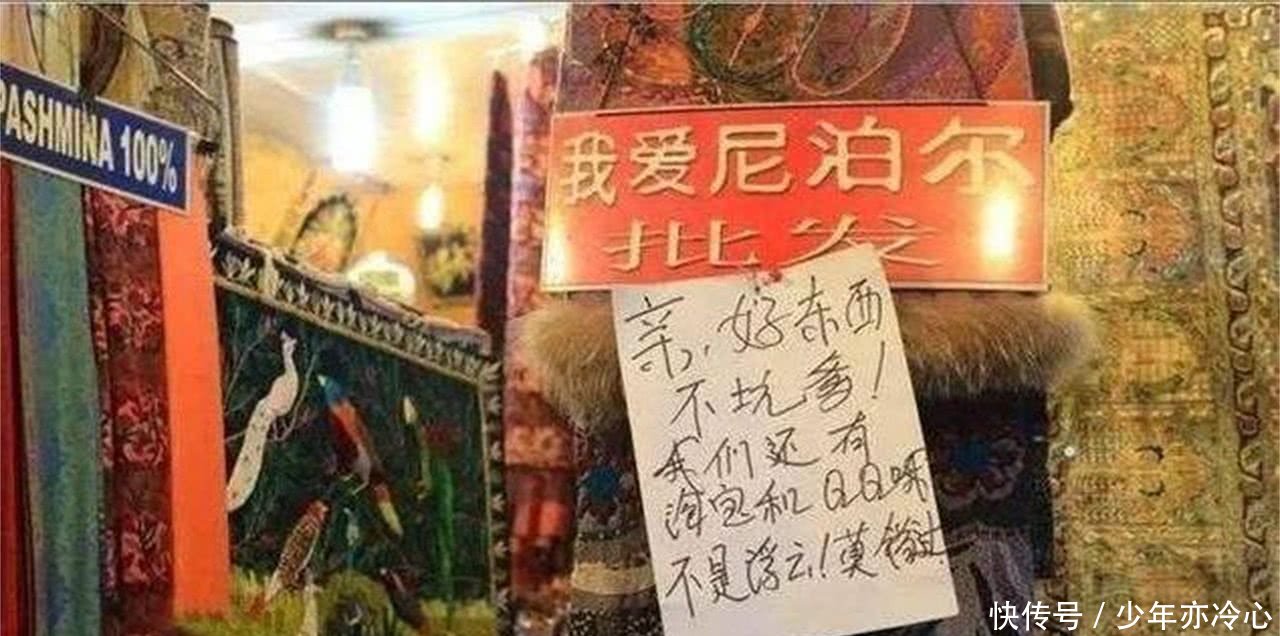 PASHMINA 100%
我爱尼泊尔
批发
亲，好东西
不坑爹！
我们还有
淘宝和QQ哦
不是浮云！莫错过！
快传号 / 少年亦冷心